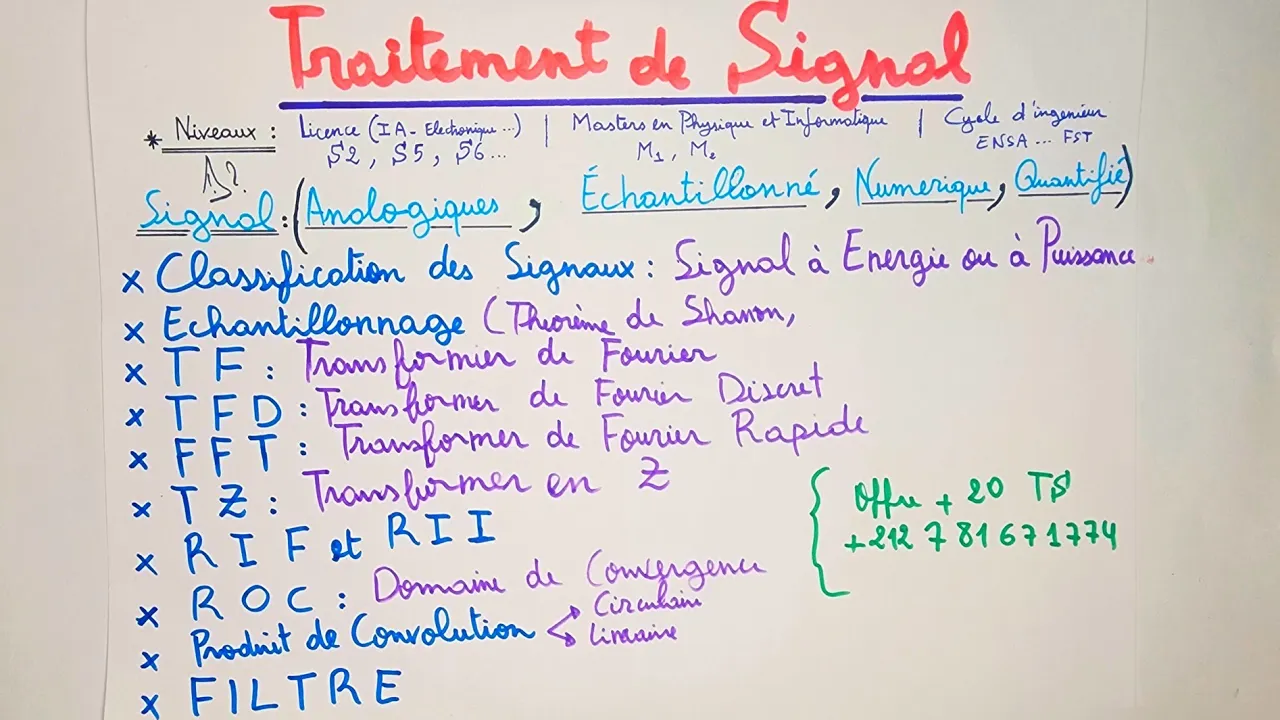 Traitement de Signal
* Niveaux : Licence (IA - Electronique ...) | Masters en Physique et Informatique | Cycle d'ingenieur
S2, S5, S6... M1, M2 ENSA ... FST
Signal : (Analogiques, Échantillonné, Numerique, Quantifié)
x Classification des Signaux : Signal à Energie ou à Puissance
x Echantillonnage (Théorème de Shanon,
x TF : Transformer de Fourier
x TFD : Transformer de Fourier Discret
x FFT : Transformer de Fourier Rapide
x TZ : Transformer en Z
Offre + 20 TS
+212 7 81 67 1774
x RIF et RII
x ROC : Domaine de Convergence
x Produit de Convolution Circulaire
Lineaire
x FILTRE